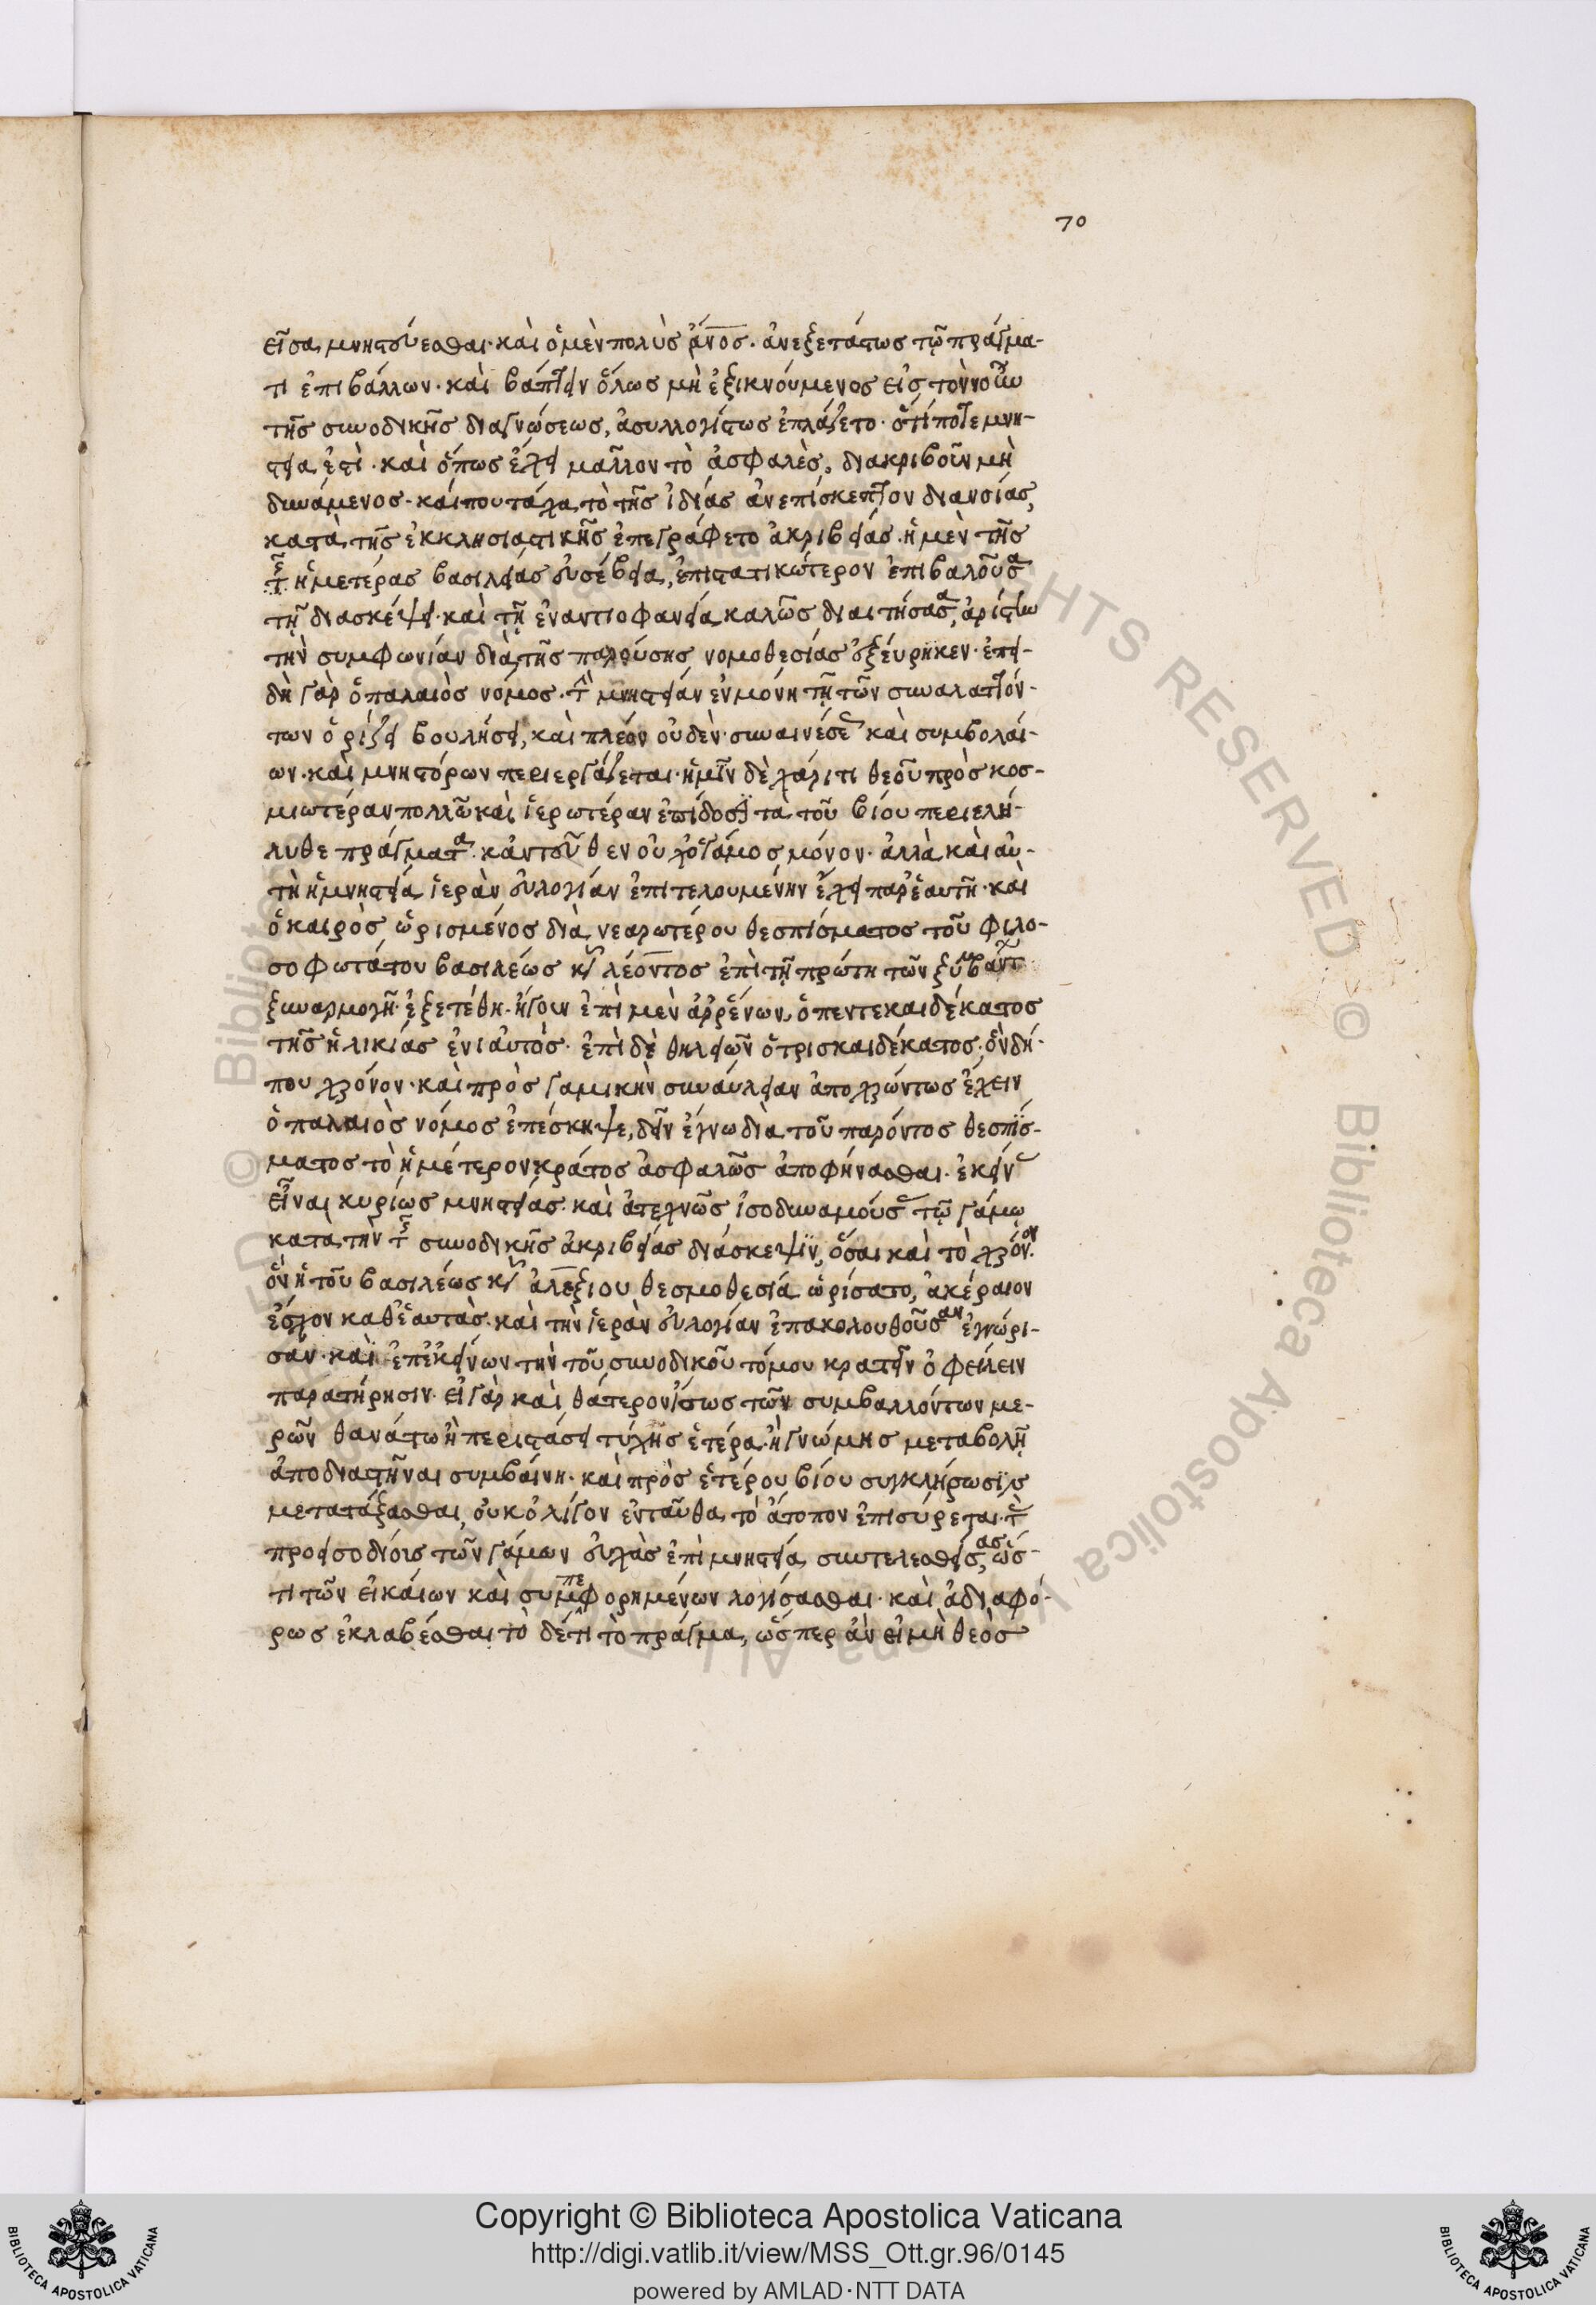 70
εἶσα, μνηστεύεσθαι· καὶ ὁ μὲν πολὺς ἄνος. ἀνεξετάστως τῷ πράγμα-
τι ἐπιβάλλων· καὶ βάπτειν ὅλως μὴ ἐξικνούμενος εἰς τὸν νοῦν
τῆς συνοδικῆς διαγνώσεως, ἀσυλλογίστως ἐπλάζετο· ὅτί ποτε μνη-
στεία ἐστὶ· καὶ ὅπως ἔχει μᾶλλον τὸ ἀσφαλὲς, διακριβοῦν μὴ
δυνάμενος· καί που τάχα, τὸ τῆς ἰδίας ἀνεπίσκεπτον διανοίας,
κατὰ τῆς ἐκκλησιαστικῆς ἐπεγράφετο ἀκριβείας. ἡ μὲν τῆς
ἡμετέρας βασιλείας εὐσέβεια, ἐπιστατικώτερον ἐπιβαλοῦσα
τῇ διασκέψει· καὶ τῇ ἐναντιοφανείᾳ καλῶς διαιτήσασα, ἀρίστην
τὴν συμφωνίαν διὰ τῆς παρούσης νομοθεσίας ἐξεύρηκεν· ἐπει-
δὴ γὰρ ὁ παλαιὸς νόμος· τὴν μνηστείαν ἐν μόνῃ τῇ τῶν συναλαττόν-
των ὁρίζει βουλήσει, καὶ πλέον οὐδὲν· συναινέσεων καὶ συμβολαί-
ων· καὶ μνηστόρων περιεργάζεται· ἡμῖν δὲ χάριτι θεοῦ πρὸς κοσ-
μιωτέραν πολλῷ καὶ ἱερωτέραν ἐπίδοσιν τὰ τοῦ βίου περιελή-
λυθε πράγματα· κἀντεῦθεν οὐχ ὁ γάμος μόνον· ἀλλὰ καὶ αὐ-
τὴ ἡ μνηστεία ἱερὰν εὐλογίαν ἐπιτελουμένην ἔχει παρ' ἑαυτῇ· καὶ
ὁ καιρὸς ὡρισμένος διὰ νεαρωτέρου θεσπίσματος τοῦ φιλο-
σοφωτάτου βασιλέως κυροῦ λέοντος ἐπὶ τῇ πρώτῃ τῶν ξυμβάντων
ξυναρμογῇ· ἐξετέθη· ἤγουν ἐπὶ μὲν ἀρρένων, ὁ πεντεκαιδέκατος
τῆς ἡλικίας ἐνιαυτὸς· ἐπὶ δὲ θηλειῶν ὁ τρισκαιδέκατος· ὃν δή-
που χρόνον· καὶ πρὸς γαμικὴν συνάφειαν ἀποχρώντως ἔχειν
ὁ παλαιὸς νόμος ἐπέσκηψε, δεῖν ἔγνω διὰ τοῦ παρόντος θεσπίσ-
ματος τὸ ἡμέτερον κράτος ἀσφαλῶς ἀποφήνασθαι· ἐκείνας
εἶναι κυρίως μνηστείας· καὶ ἀτεχνῶς ἰσοδυναμούσας τῷ γάμῳ
κατὰ τὴν τῆς συνοδικῆς ἀκριβείας διάσκεψιν, ὅσαι καὶ τὸ χρόνον·
ὃν ἡ τοῦ βασιλέως κυροῦ ἀλεξίου θεσμοθεσία ὡρίσατο, ἀκέραιον
ἔσχον καθ' ἑαυτὰς· καὶ τὴν ἱερὰν εὐλογίαν ἐπακολουθοῦσαν ἐγνώρι-
σαν· καὶ ἐπ' ἐκείνων τὴν τοῦ συνοδικοῦ τόμου κρατεῖν ὀφείλειν
παρατήρησιν· εἰ γὰρ καὶ θάτερον ἴσως τῶν συμβαλλόντων με-
ρῶν θανάτω ἢ περιστάσει τύχης ἑτέρα· ἢ γνώμης μεταβολῇ
ἀποδιαστῆναι συμβαίνη· καὶ πρὸς ἑτέρου βίου συγκλήρωσιν
μετατάξασθαι, οὐκ ὀλίγον ἐνταῦθα, τὸ ἄτοπον ἐπισύρεται· τὰς
προεισοδίοις τῶν γάμων εὐχὰς ἐπὶ μνηστεία συντελεσθείσας, ὥσ-
τι τῶν εἰκαίων καὶ συμπεφορημένων λογίσασθαι· καὶ ἀδιαφό-
ρως ἐκλαβέσθαι τὸ δέ τι τὸ πράγμα, ὥσπερ ἂν εἰ μὴ θεὸς
Copyright © Biblioteca Apostolica Vaticana
http://digi.vatlib.it/view/MSS_Ott.gr.96/0145
powered by AMLAD·NTT DATA